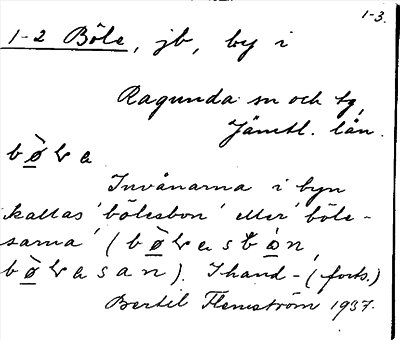 1-3.
1-2 Böle, jb, by i
Ragunda sn och tg,
Jämtl. län.
bø̀ɽa
Invånarna i byn
kallas 'bölesbon' eller 'böle-
sarna' (bø̀ɽasbòn,
bø̀ɽasan). I hand- (forts.)
Bertil Flemström 1937.